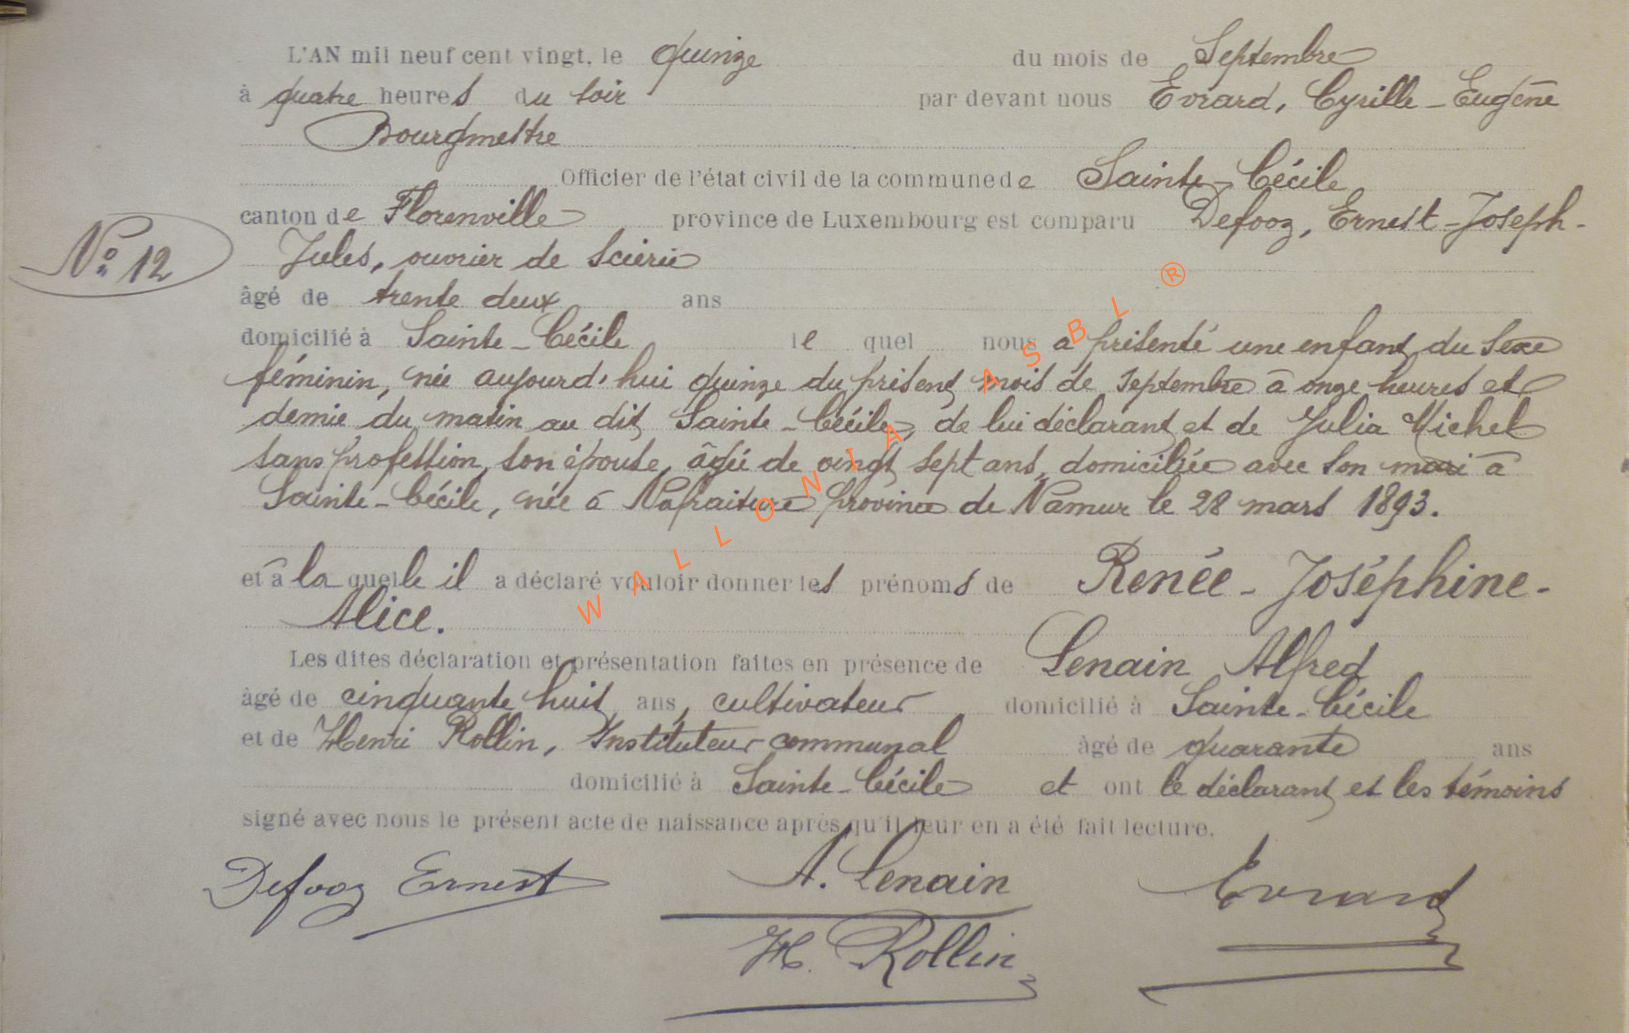 L'AN mil neuf cent vingt, le quinze du mois de Septembre
à quatre heures du soir par devant nous Evrard, Cyrille-Eugène
Bourgmestre
Officier de l'état civil de la commune de Sainte-Cécile
canton de Florenville province de Luxembourg est comparu Defooz, Ernest-Joseph-
N° 12
Jules, ouvrier de scierie
âgé de trente deux ans
domicilié à Sainte-Cécile le quel nous a présenté une enfant du sexe
féminin, née aujourd'hui quinze du présent mois de septembre à onze heures et
demie du matin au dit Sainte-Cécile, de lui déclarant et de Julia Michel
sans profession, son épouse, âgée de vingt sept ans, domiciliée avec son mari à
Sainte-Cécile, née à Nafraiture province de Namur le 28 mars 1893.
et à la quelle il a déclaré vouloir donner les prénoms de Renée-Joséphine-
Alice.
Les dites déclaration et présentation faites en présence de Lenain Alfred
âgé de cinquante huit ans, cultivateur domicilié à Sainte-Cécile
et de Henri Rollin, Instituteur communal âgé de quarante ans
domicilié à Sainte-Cécile et ont le déclarant et les témoins
signé avec nous le présent acte de naissance après qu'il leur en a été fait lecture.
Defooz Ernest A. Lenain Evrard
H. Rollin
WALLONIA ASBL ®